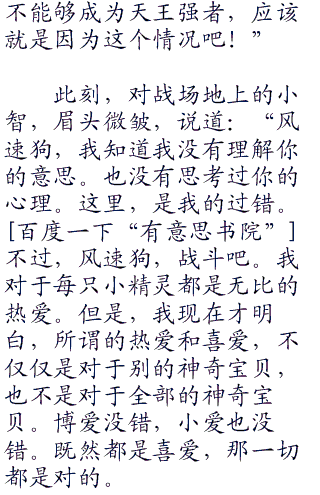 不能够成为天王强者，应该
就是因为这个情况吧！”
此刻，对战场地上的小
智，眉头微皱，说道：“风
速狗，我知道我没有理解你
的意思。也没有思考过你的
心理。这里，是我的过错。
[百度一下“有意思书院”]
不过，风速狗，战斗吧。我
对于每只小精灵都是无比的
热爱。但是，我现在才明
白，所谓的热爱和喜爱，不
仅仅是对于别的神奇宝贝，
也不是对于全部的神奇宝
贝。博爱没错，小爱也没
错。既然都是喜爱，那一切
都是对的。